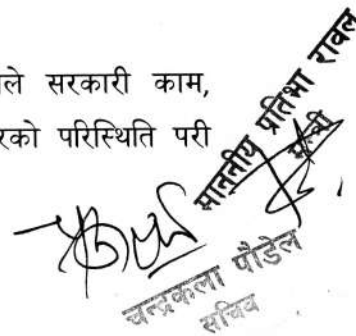 ले सरकारी काम,
रको परिस्थिति परी
माननीय प्रतिभा रावल
मन्त्री
चन्द्रकला पौडेल
सचिव